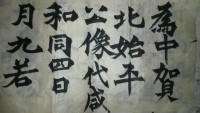 為中賀
北始平
公像代咸
和同四日
月九若